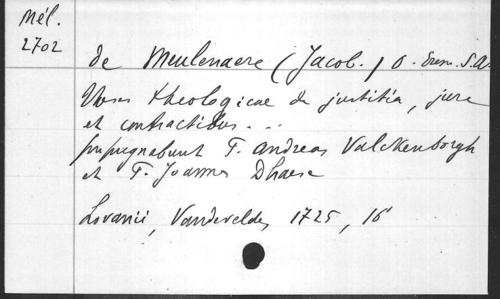 Mél.
2702
de Meulenaere (Jacob.) O. Erem. S. A.
Theses theologicae de justitia, jure
et contractibus...
propugnabunt F. Andreas Valckenborgh
et F. Joannes Dhaese
Lovanii, Vandevelde, 1725, 16°